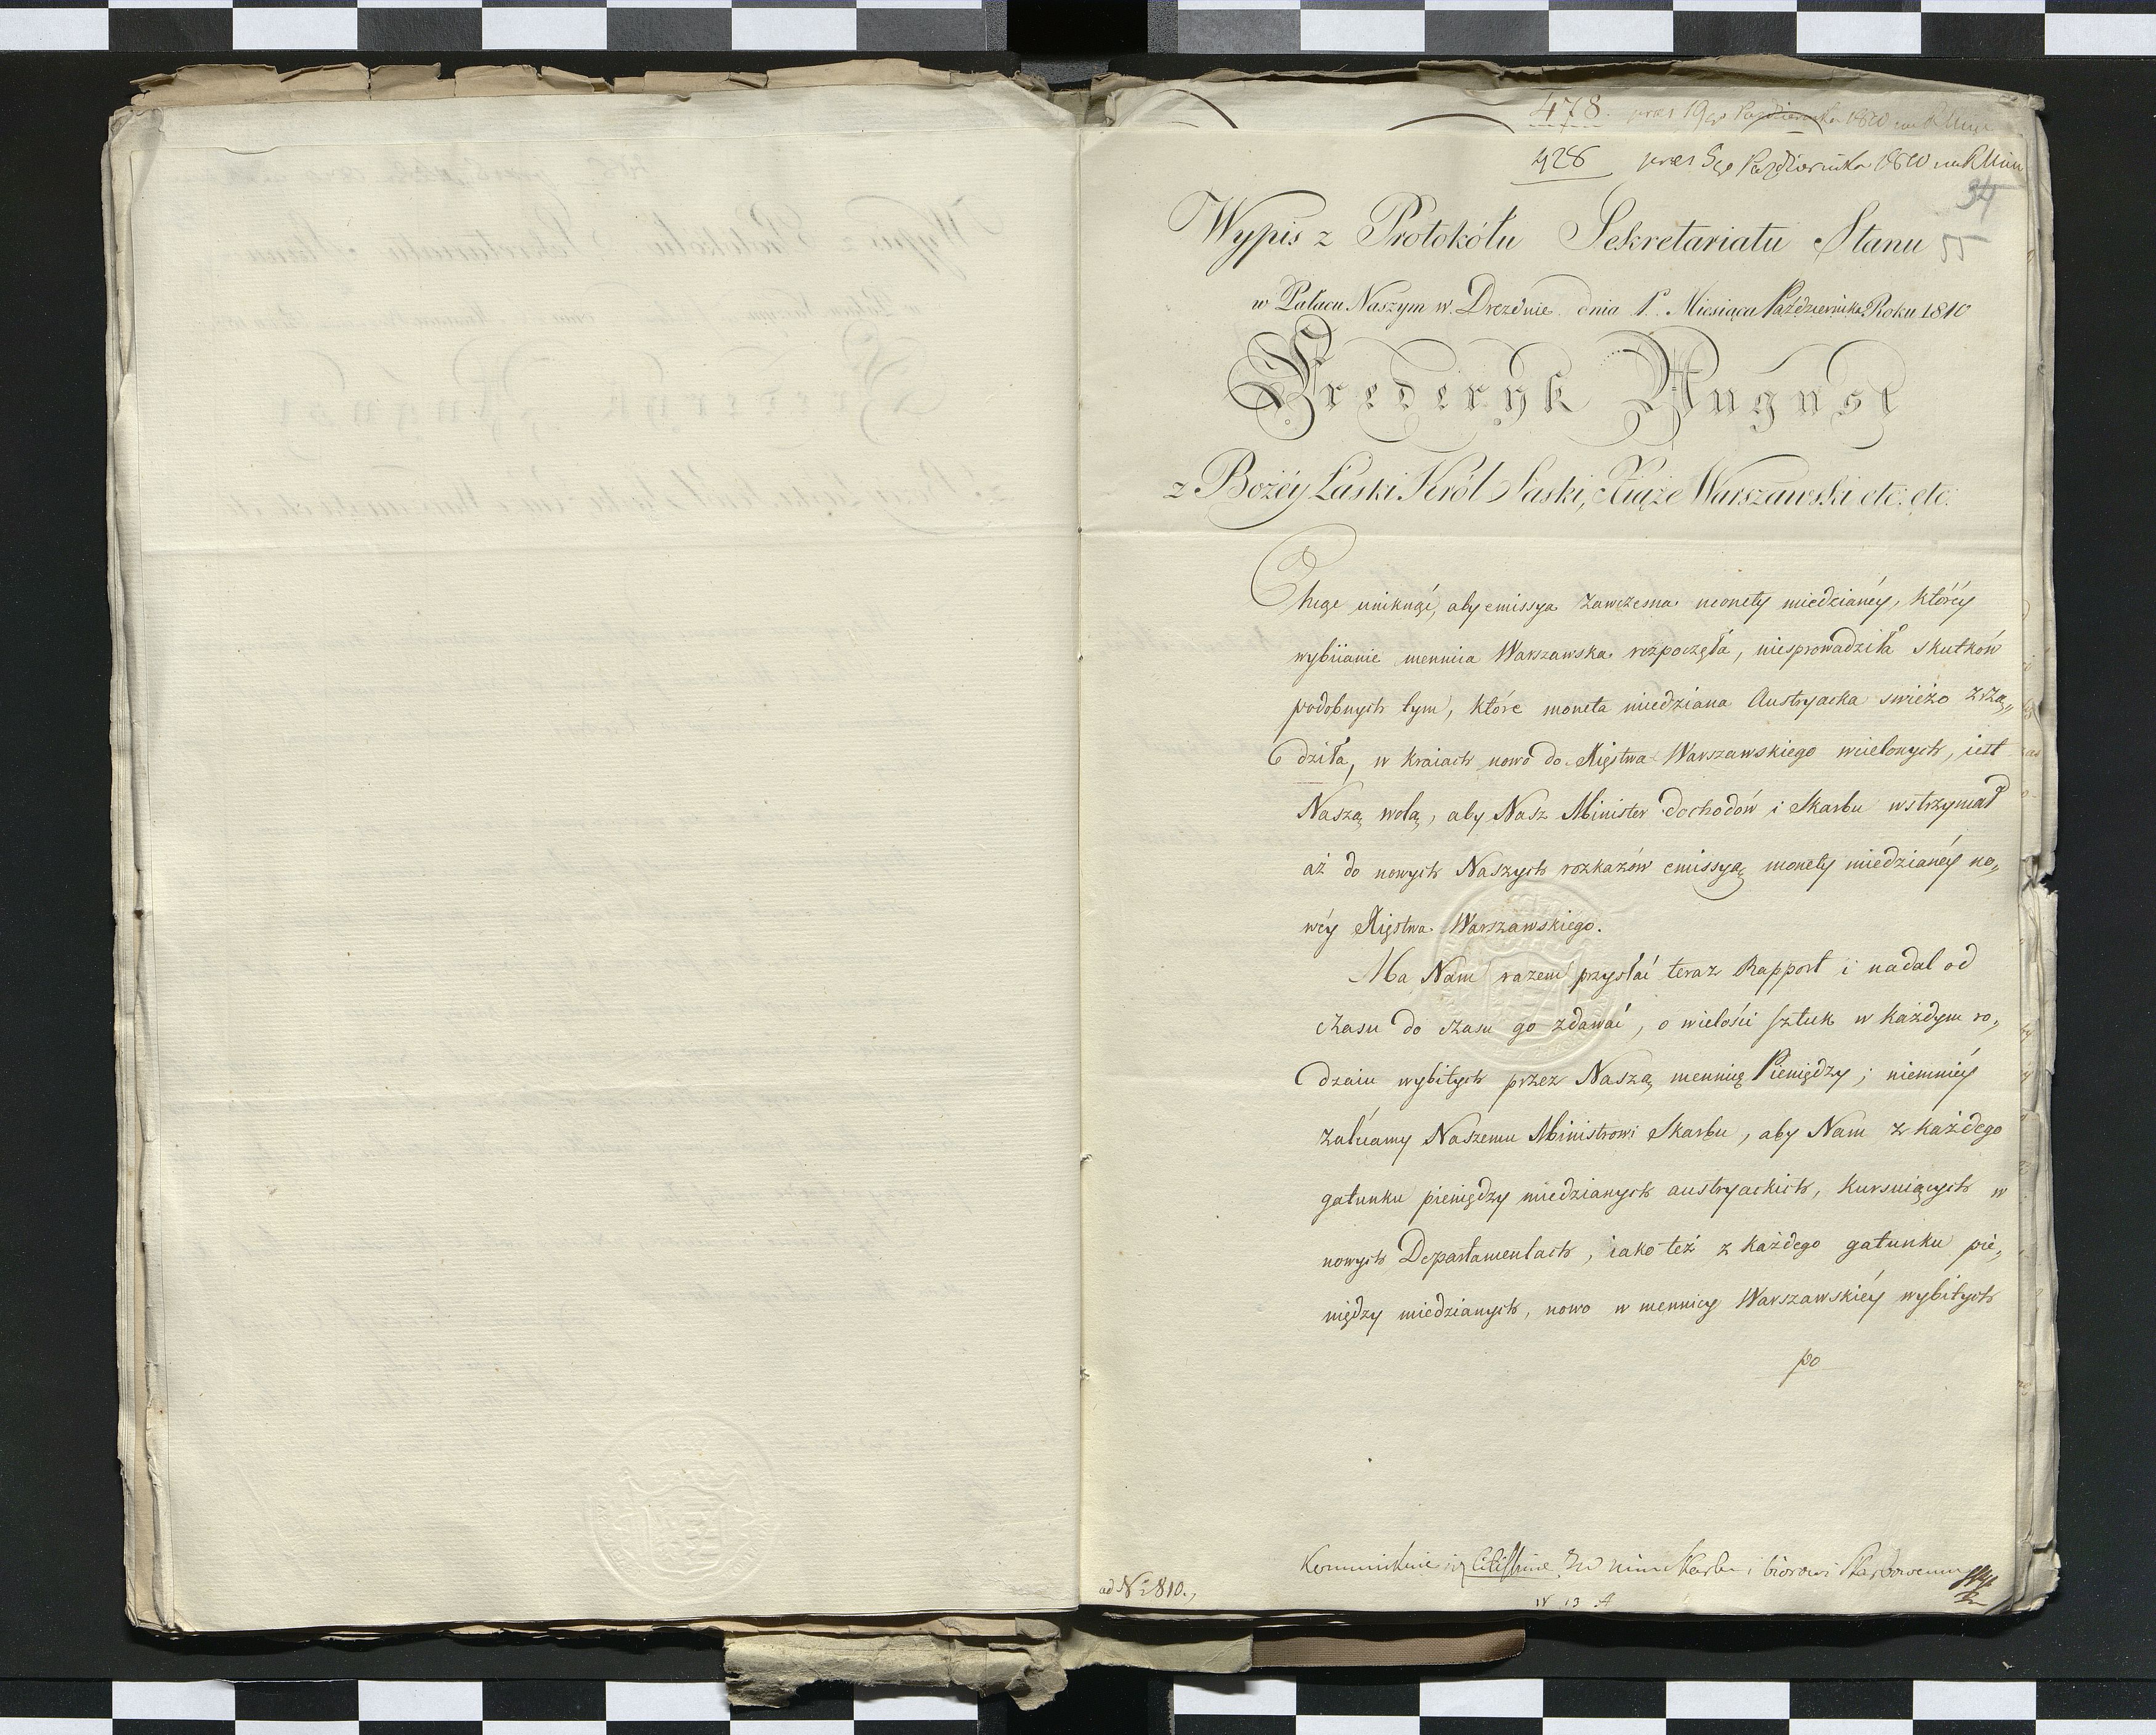 478. pres 19go Października 1810 na RMin
428 pres 5go Października 1810 na RMin
34
55
Wypis z Protokółu Sekretariatu Stanu
w Pałacu Naszym w Drezdnie dnia 1o Miesiąca Października Roku 1810
Fryderyk August
z Bożéy Łaski Król Saski, Xiąże Warszawski etc: etc:
Chcąc uniknąć, aby emissya zawczesna monety miedzianéy, któréy
wybiianie mennica Warszawska rozpoczęła, niesprowadziła skutków
podobnych tym, które moneta miedziana Austryacka swieżo zrzą„
dziła, w kraiach nowo do Xięstwa Warszawskiego wcielonych, iest
Naszą wolą, aby Nasz Minister dochodów i Skarbu wstrzymał
aż do nowych Naszych rozkazów emissyą monety miedzianéy no„
wéy Xięstwa Warszawskiego.
Ma Nam razem przysłać teraz Rapport i nadal od
czasu do czasu go zdawać, o wielości sztuk w każdym ro„
dzaiu wybitych przez Naszą mennicę Pieniędzy; niemniéy
zalécamy Naszemu Ministrowi Skarbu, aby Nam z każdego
gatunku pieniędzy miedzianych austryackich, kursuiących w
nowych Departamentach, iako też z każdego gatunku pie„
niędzy miedzianych, nowo w mennicy Warszawskiéy wybitych
po
ad No 2810.,